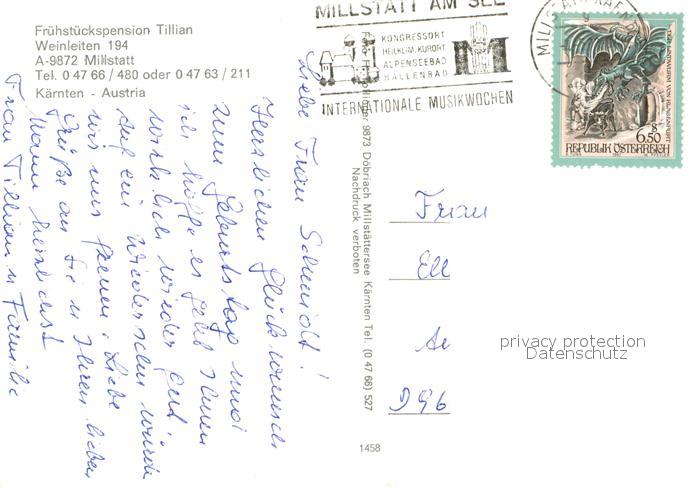 Frühstückspension Tillian
Weinleiten 194
A-9872 Millstatt
Tel. 0 47 66 / 480 oder 0 47 63 / 211
Kärnten - Austria
Liebe Frau Schmidt!
Herzlichen Glückwunsch
zum Geburtstag und
ich hoffe es geht Ihnen
wirklich wieder gut.
Auf ein Wiedersehn würden
wir uns freuen. Liebe
Grüße an Sie u Ihren lieben
Mann herzlichst
Frau Tillian u Familie
MILLSTATT AM SEE
KONGRESSORT
HEILKLIM. KURORT
ALPENSEEBAD
HALLENBAD
INTERNATIONALE MUSIKWOCHEN
9873 Döbriach Millstättersee Kärnten Tel. (0 47 66) 527
Nachdruck verboten
1458
DER LINDWURM VON KLAGENFURT
S
6.50
REPUBLIK ÖSTERREICH
Frau
Ell
D 96
privacy protection
Datenschutz